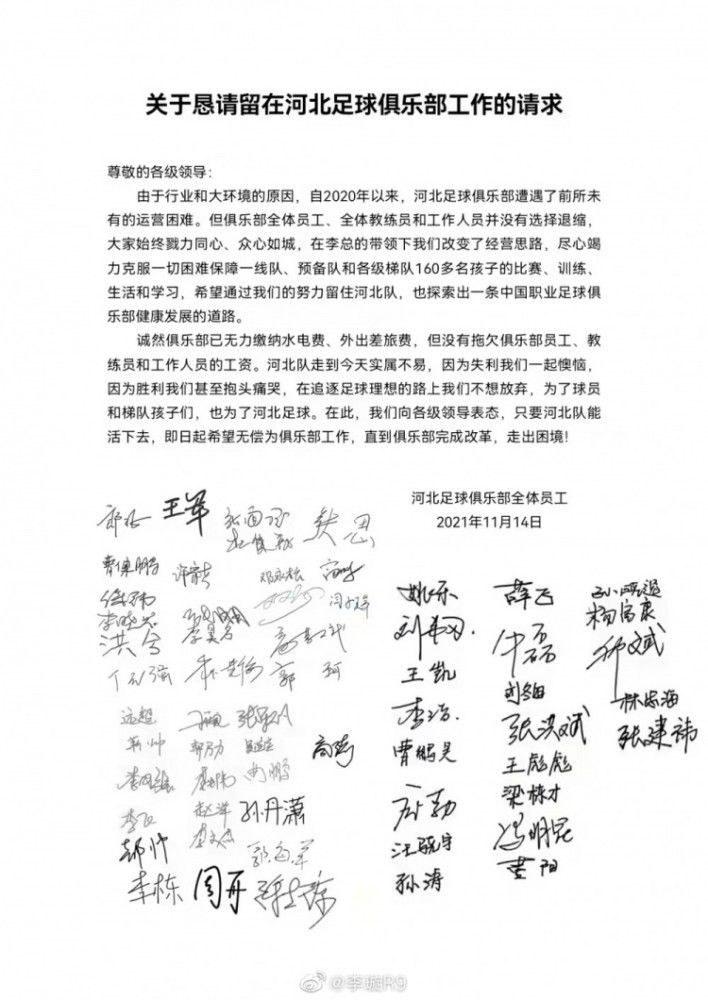 关于恳请留在河北足球俱乐部工作的请求
尊敬的各级领导:
由于行业和大环境的原因，自2020年以来，河北足球俱乐部遭遇了前所未
有的运营困难。但俱乐部全体员工、全体教练员和工作人员并没有选择退缩，
大家始终戮力同心、众心如城，在李总的带领下我们改变了经营思路，尽心竭
力克服一切困难保障一线队、预备队和各级梯队160多名孩子的比赛、训练、
生活和学习，希望通过我们的努力留住河北队，也探索出一条中国职业足球俱
乐部健康发展的道路。
诚然俱乐部已无力缴纳水电费、外出差旅费，但没有拖欠俱乐部员工、教
练员和工作人员的工资。河北队走到今天实属不易，因为失利我们一起懊恼，
因为胜利我们甚至抱头痛哭，在追逐足球理想的路上我们不想放弃，为了球员
和梯队孩子们，也为了河北足球。在此，我们向各级领导表态，只要河北队能
活下去，即日起希望无偿为俱乐部工作，直到俱乐部完成改革，走出困境!
河北足球俱乐部全体员工
2021年11月14日
王军
洪兮
郭珂
孙丹潇
郭海军
李栋 周开
姚乐
王凯
李浩
曹鹏昊
汪骁宇
孙涛
薛飞
牛磊
张洪斌
王彪彪
梁栋才
冯明昆
黄阳
杨富康
林宏海
张建祎
@李璇R9